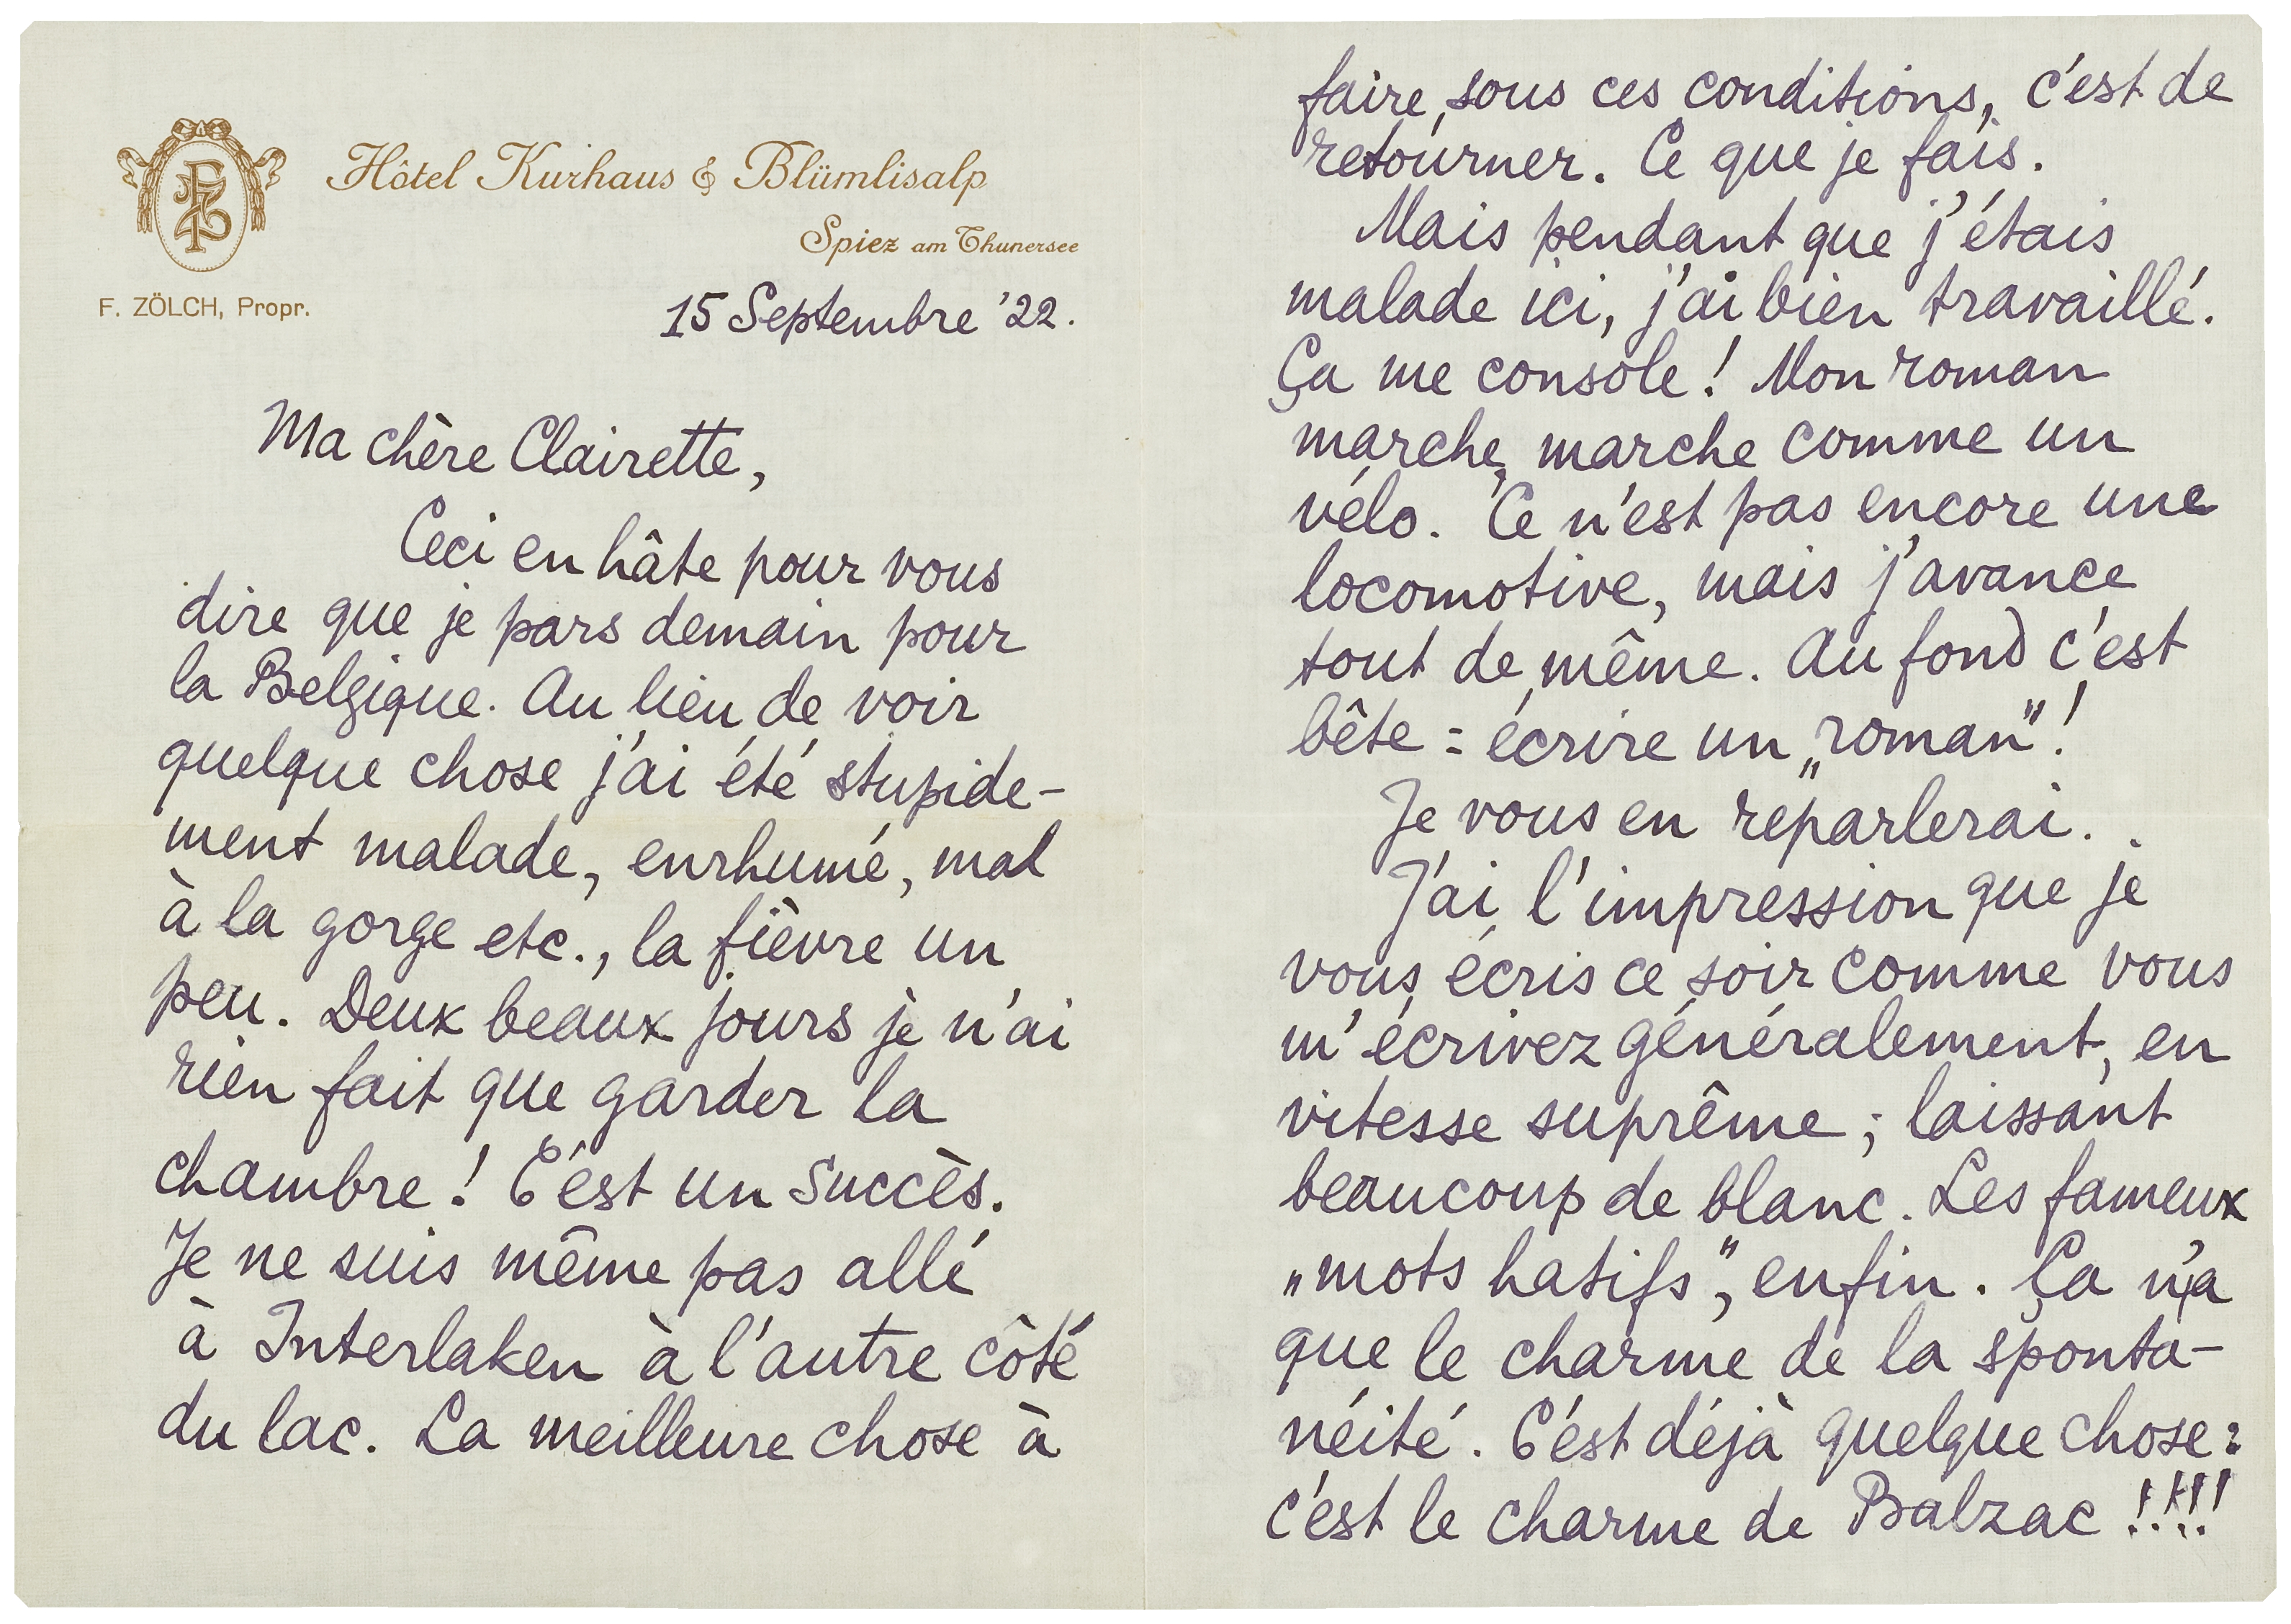 FZ
Hôtel Kurhaus & Blümlisalp
Spiez am Thunersee
F. ZÖLCH, Propr.
15 Septembre '22.
Ma chère Clairette,
Ceci en hâte pour vous
dire que je pars demain pour
la Belgique. Au lieu de voir
quelque chose j'ai été stupide-
ment malade, enrhumé, mal
à la gorge etc., la fièvre un
peu. Deux beaux jours je n'ai
rien fait que garder la
chambre! C'est un succès.
Je ne suis même pas allé
à Interlaken à l'autre côté
du lac. La meilleure chose à
faire, sous ces conditions, c'est de
retourner. Ce que je fais.
Mais pendant que j'étais
malade ici, j'ai bien travaillé.
Ça me console! Mon roman
marche, marche comme un
vélo. Ce n'est pas encore une
locomotive, mais j'avance
tout de même. Au fond c'est
bête = écrire un „roman"!
Je vous en reparlerai.
J'ai l'impression que je
vous écris ce soir comme vous
m'écrivez généralement, en
vitesse suprême; laissant
beaucoup de blanc. Les fameux
„mots hatifs", enfin. Ça n'a
que le charme de la sponta-
néité. C'est déjà quelque chose:
c'est le charme de Balzac!!!!